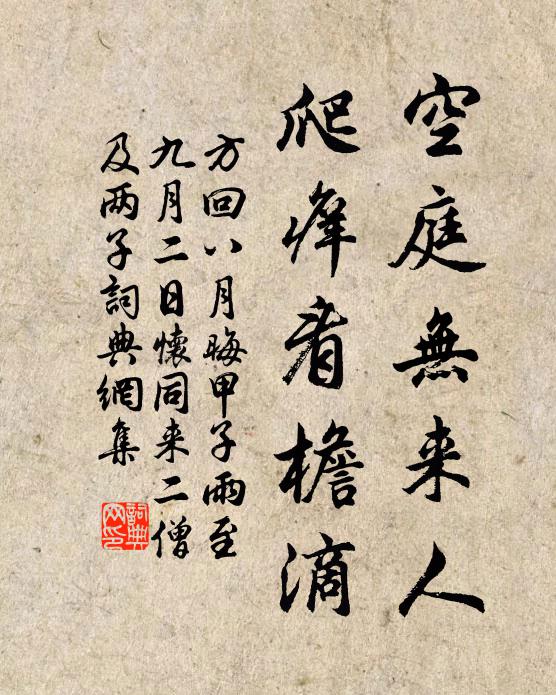 空庭無来人
爬痒看檐滴
方回八月晦甲子雨至
九月二日懷同来二僧
及两子詞典網集
詞典網印